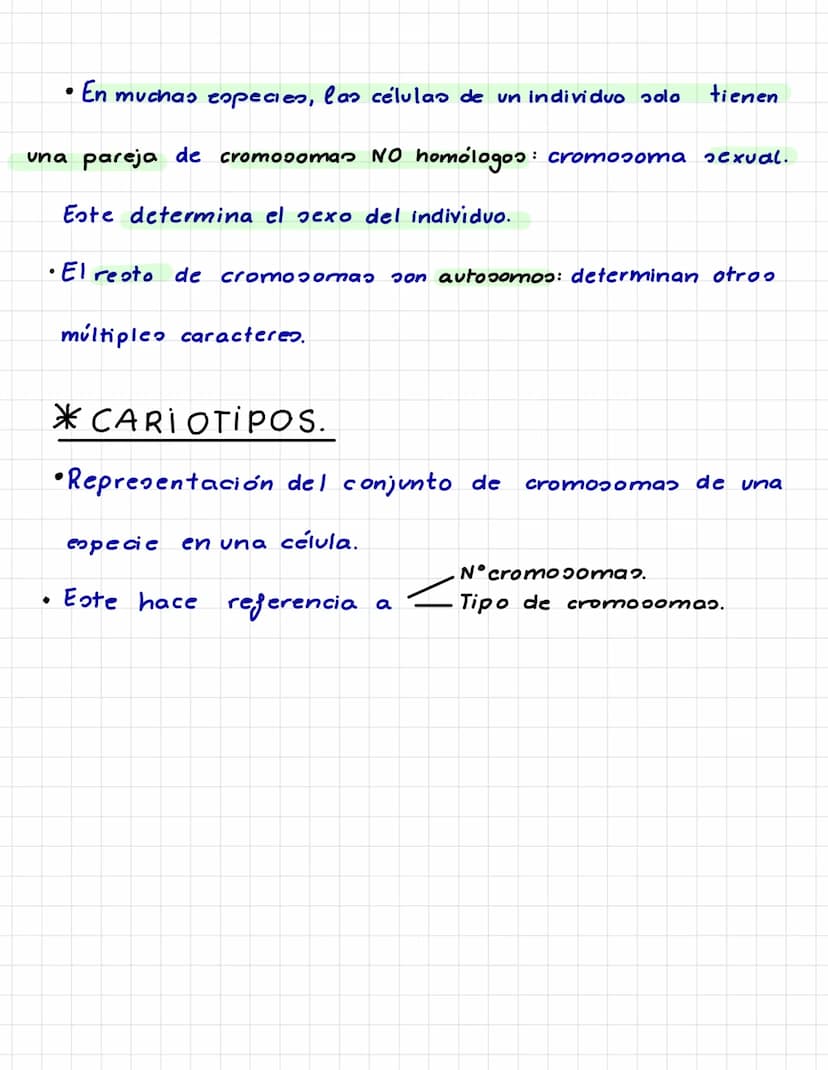 • En muchas especies, las células de un individuo solo tienen
una pareja de cromosomas NO homólogos: cromosoma sexual.
Este determina el sexo del individuo.
• El resto de cromosomas son autosomos: determinan otros
múltiples caracteres.
* CARIOTIPOS.
• Representación del conjunto de cromosomas de una
especie en una célula.
N° cromosomas.
• Este hace referencia a Tipo de cromosomas.